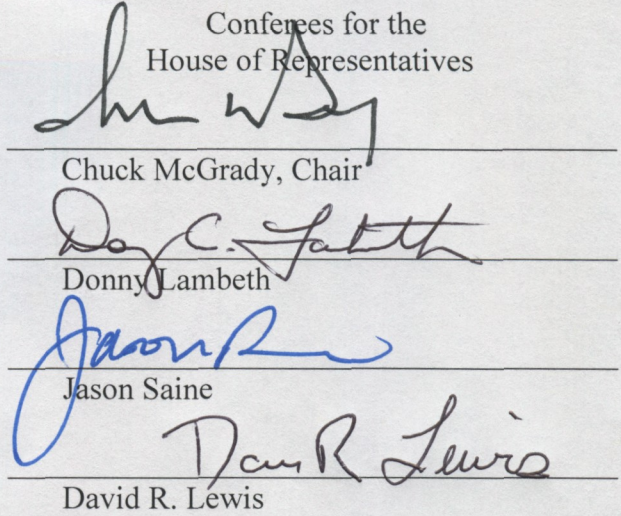 Conferees for the
House of Representatives
Chuck McGrady, Chair
Donny C. Lambeth
Donny Lambeth
Jason
Jason Saine
David R Lewis
David R. Lewis